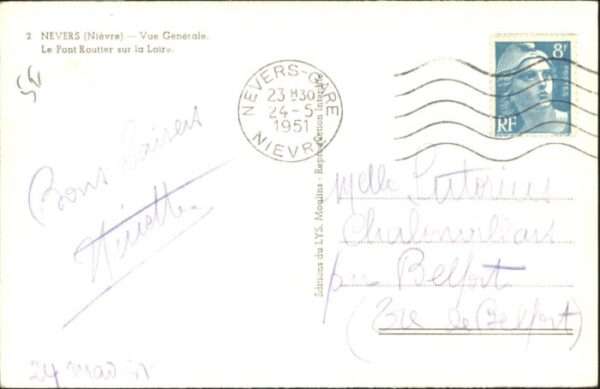 2 NEVERS (Nièvre) — Vue Générale.
Le Pont Routier sur la Loire.
NEVERS-GARE
23 H30
24-5
1951
NIEVRE
8F
POSTES
RF
Editions du LYS. Moulins - Reproduction Interdite
Bons baisers
24 mai 51
Melle
par Belfort
(Ter de Belfort)